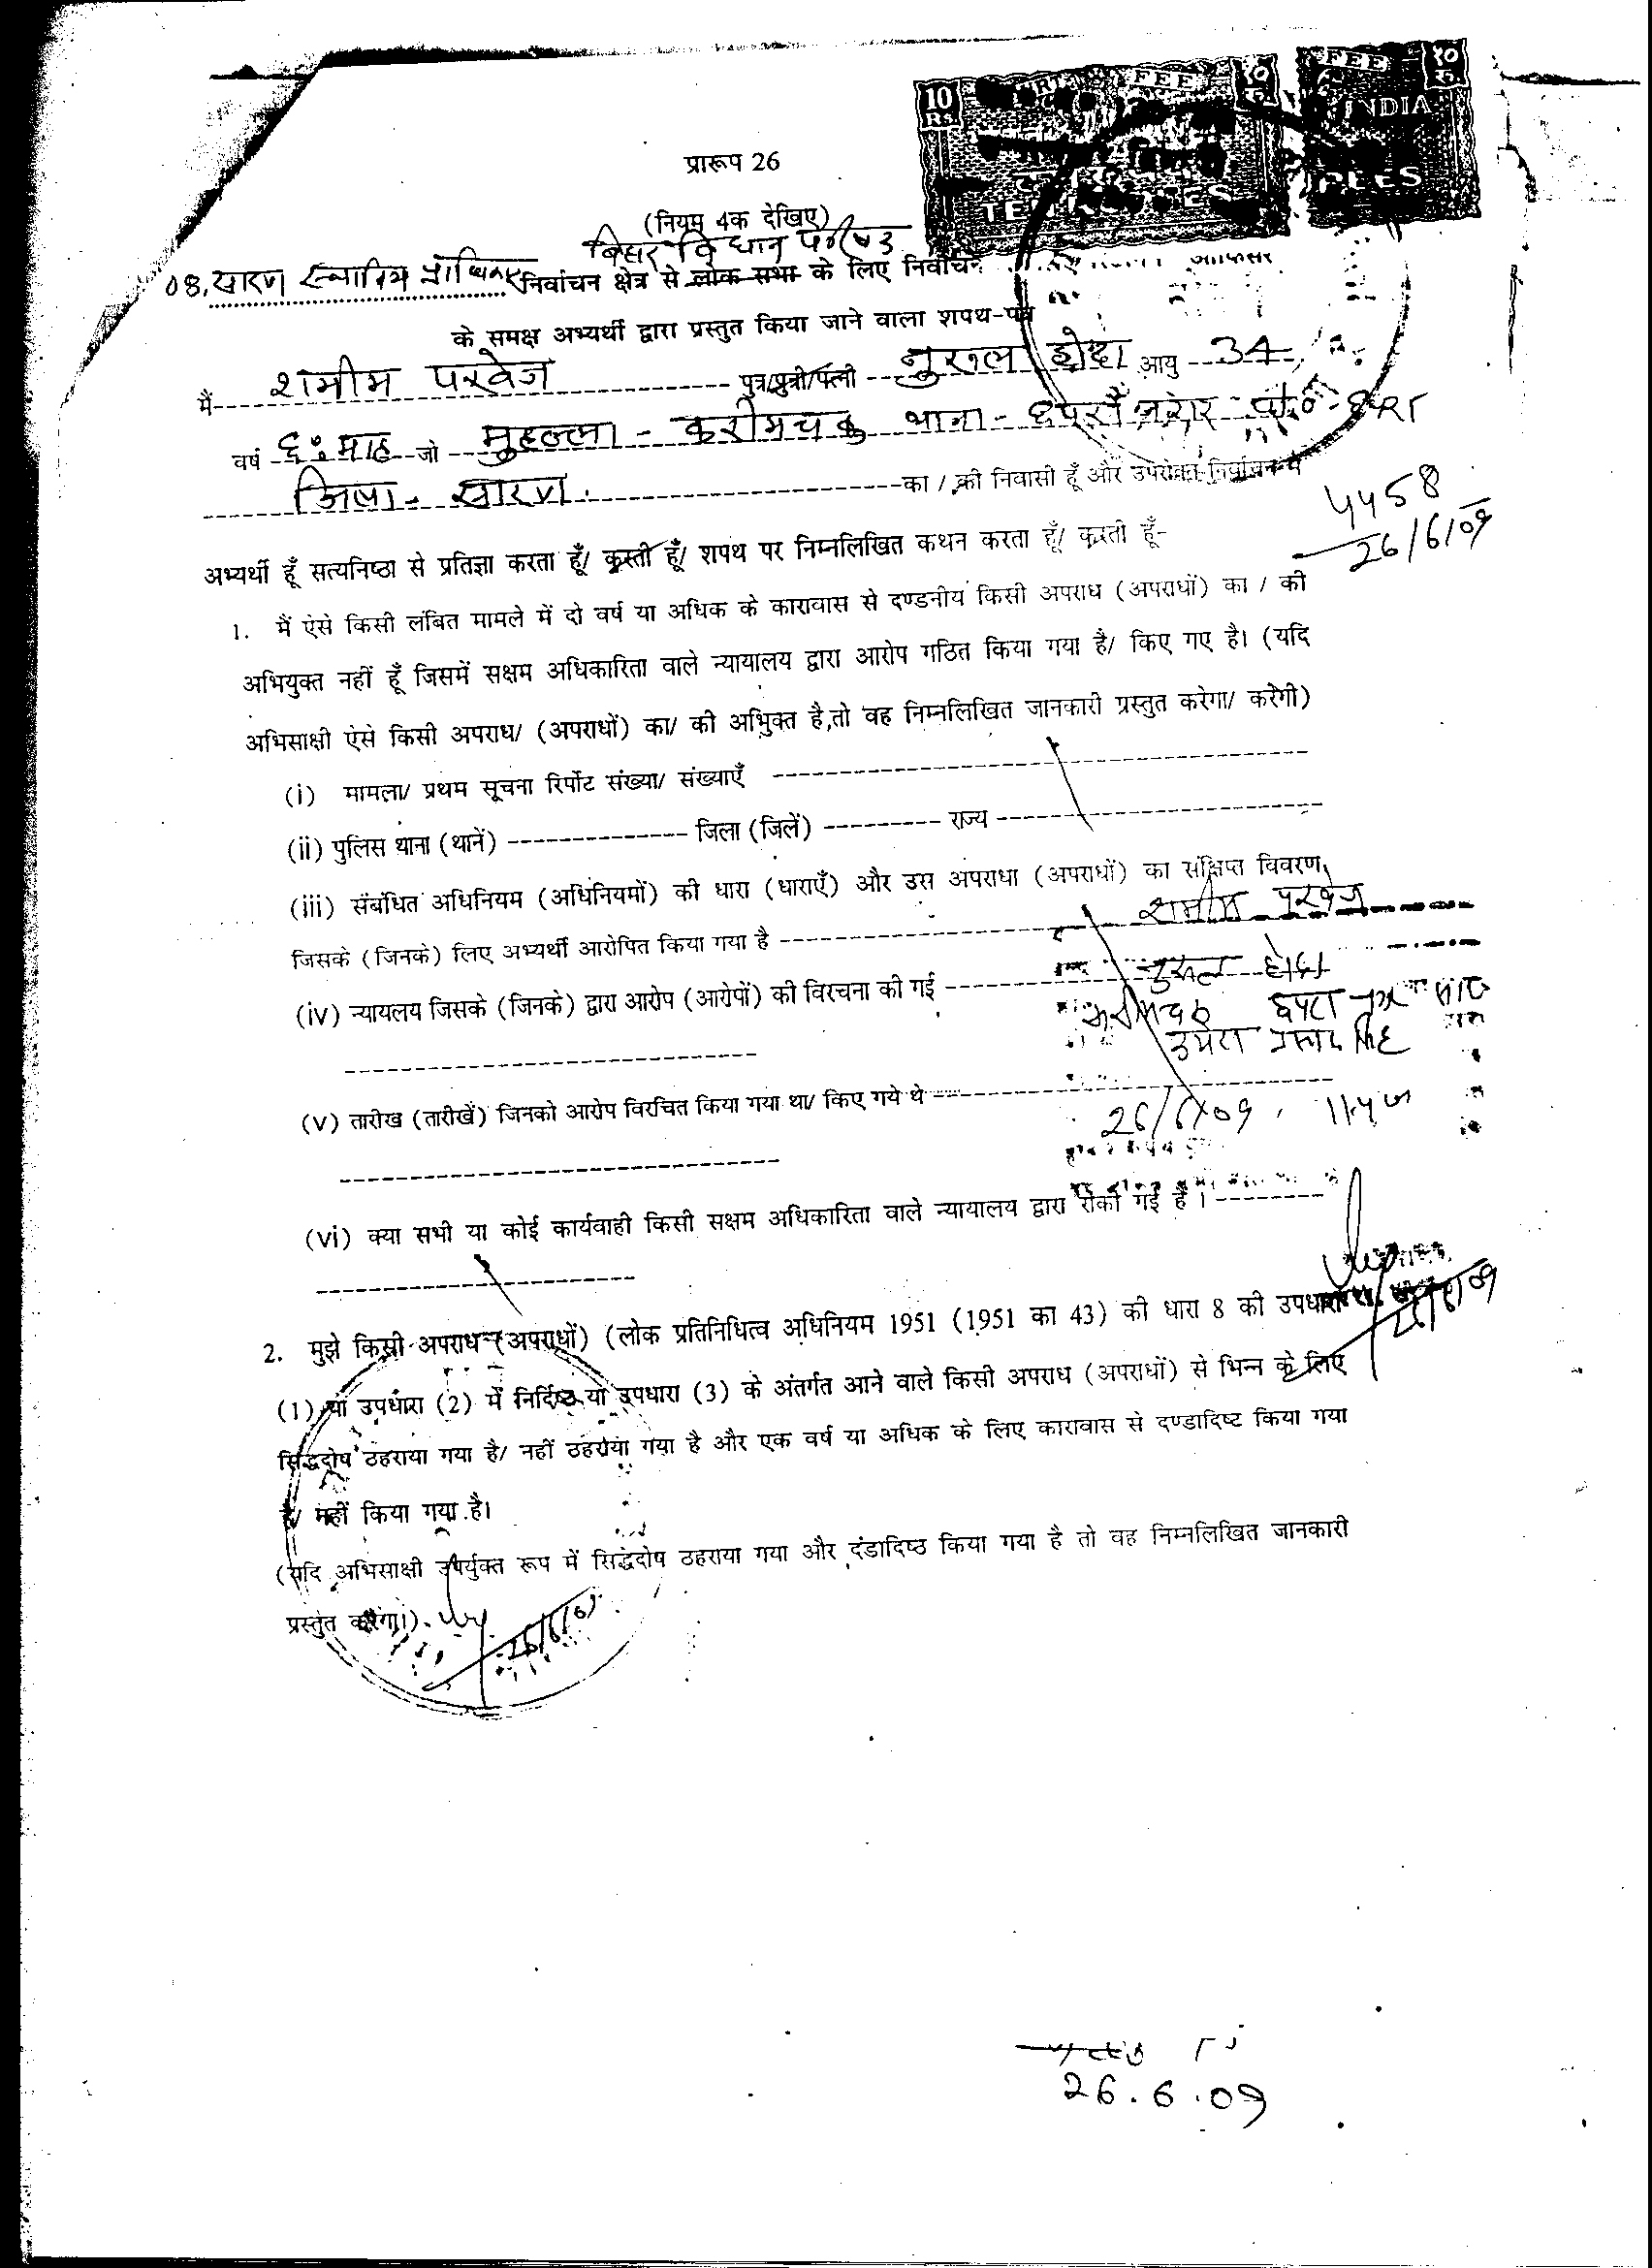 10 Rs.
FEE
१० रु.
FEE
१० रु.
INDIA
TEN RUPEES
RUPEES
प्रारूप 26
(नियम 4क देखिए)
बिहार विधान परिषद
08. सारण स्थानीय प्राधिकार निर्वाचन क्षेत्र से लोक सभा के लिए निर्वाचन आफिसर
के समक्ष अभ्यर्थी द्वारा प्रस्तुत किया जाने वाला शपथ-पत्र
मैं शमीम परवेज पुत्र/पुत्री/पत्नी नुरुल होदा आयु 34
वर्ष छः माह जो मुहल्ला - करीमचक थाना - छपरा नगर पो०-छपरा
जिला - सारण. का / की निवासी हूँ और उपरोक्त निर्वाचन में
4458
26/6/09
अभ्यर्थी हूँ सत्यनिष्ठा से प्रतिज्ञा करता हूँ/ करती हूँ/ शपथ पर निम्नलिखित कथन करता हूँ/ करती हूँ-
1. मैं ऐसे किसी लंबित मामले में दो वर्ष या अधिक के कारावास से दण्डनीय किसी अपराध (अपराधों) का / की
अभियुक्त नहीं हूँ जिसमें सक्षम अधिकारिता वाले न्यायालय द्वारा आरोप गठित किया गया है/ किए गए है। (यदि
अभिसाक्षी ऐसे किसी अपराध/ (अपराधों) का/ की अभिुक्त है,तो वह निम्नलिखित जानकारी प्रस्तुत करेगा/ करेगी)
(i) मामला/ प्रथम सूचना रिर्पोट संख्या/ संख्याएँ
(ii) पुलिस थाना (थानें) जिला (जिलें) राज्य
(iii) संबंधित अधिनियम (अधिनियमों) की धारा (धाराएँ) और उस अपराधा (अपराधों) का संक्षिप्त विवरण
शमीम परवेज
जिसके (जिनके) लिए अभ्यर्थी आरोपित किया गया है
नुरुल होदा
(iv) न्यायलय जिसके (जिनके) द्वारा आरोप (आरोपों) की विरचना की गई
करीमचक छपरा
(v) तारीख (तारीखें) जिनको आरोप विरचित किया गया था/ किए गये थे
26/6/09
(vi) क्या सभी या कोई कार्यवाही किसी सक्षम अधिकारिता वाले न्यायालय द्वारा रोकी गई है।
2. मुझे किसी अपराध (अपराधों) (लोक प्रतिनिधित्व अधिनियम 1951 (1951 का 43) की धारा 8 की उपधारा
(1) या उपधारा (2) में निर्दिष्ठ या उपधारा (3) के अंतर्गत आने वाले किसी अपराध (अपराधों) से भिन्न के लिए
सिद्धदोष ठहराया गया है/ नहीं ठहराया गया है और एक वर्ष या अधिक के लिए कारावास से दण्डादिष्ट किया गया
है/ नहीं किया गया है।
(यदि अभिसाक्षी उपर्युक्त रूप में सिद्धदोष ठहराया गया और दंडादिष्ठ किया गया है तो वह निम्नलिखित जानकारी
प्रस्तुत करेगा।)
26.6.09